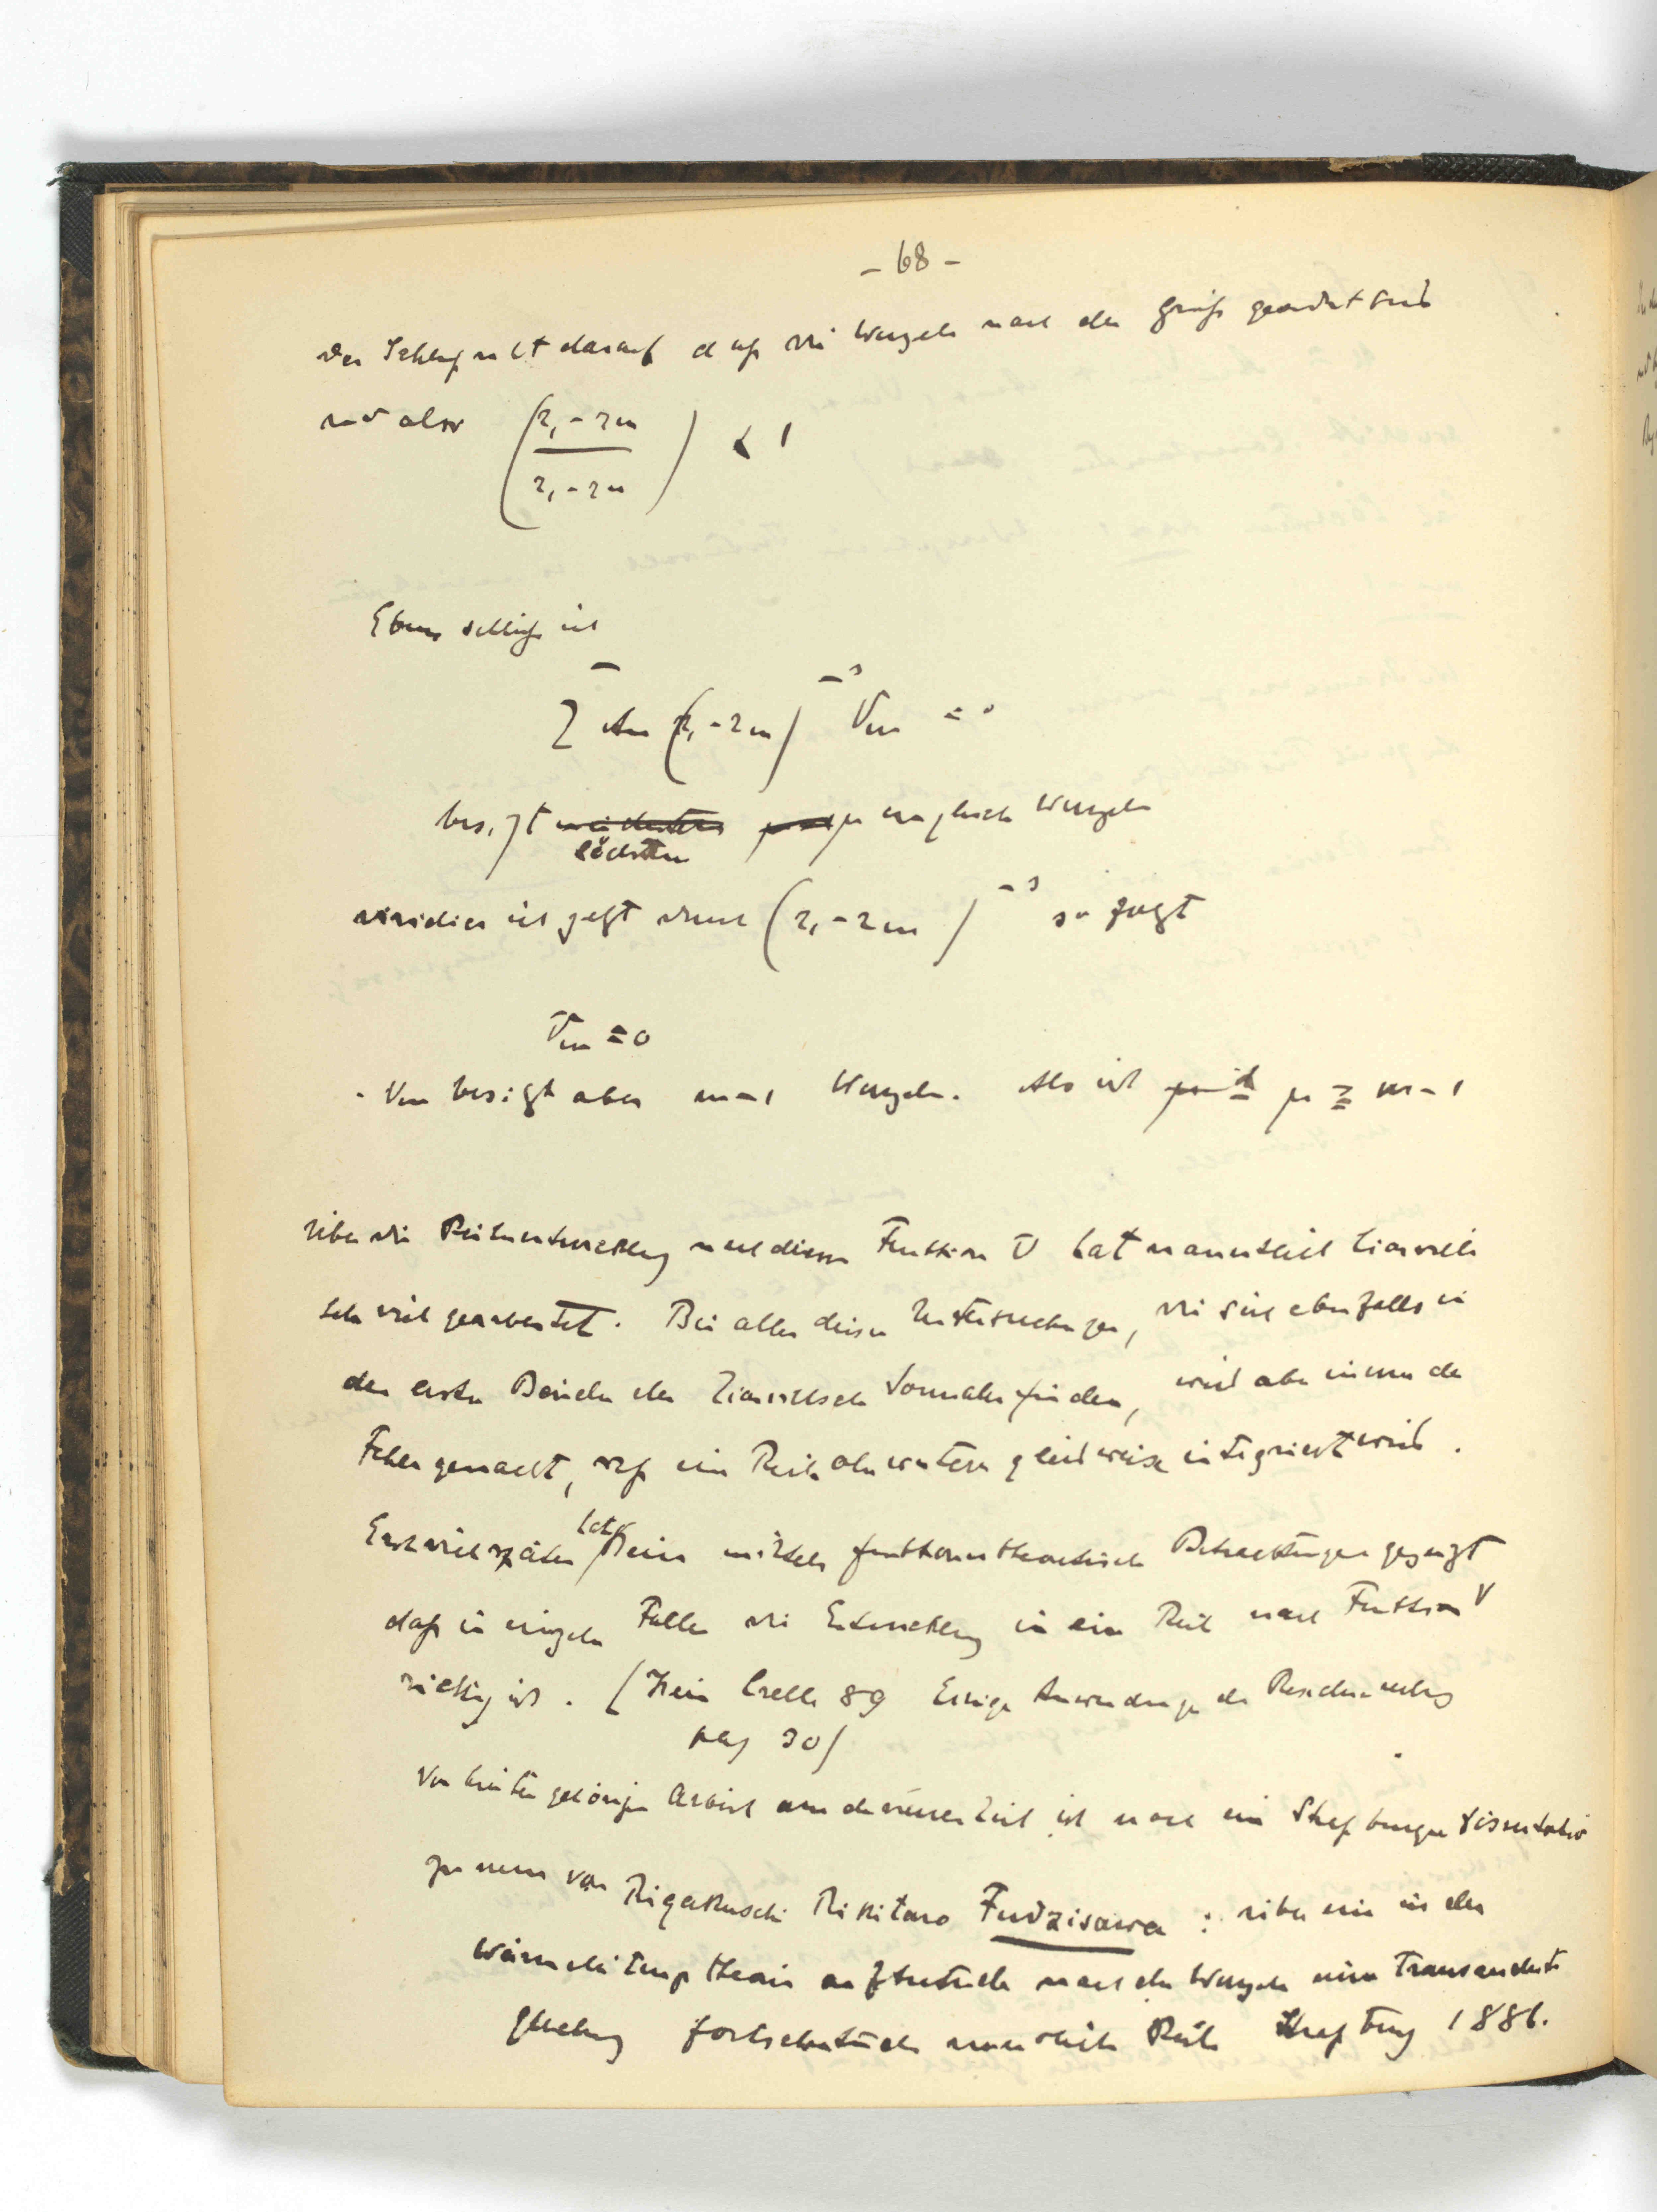 - 68 -
der Schluß ruht darauf daß die Wurzeln nach der Größe geordnet sind
und also (r₁ - rm / r₁ - rn) < 1
Ebenso schließe ich
Σ Am (r₁ - rm)⁻ˢ Vm = 0
besizt höchstens μ ungleiche Wurzeln
dividier ich jetzt durch (r₁ - rm)⁻ˢ so folgt
Vm = 0
Vm besizt aber m-1 Wurzeln. Also ist μ ≧ m-1
über die Reihenentwicklung nach diesen Funktionen V hat namentlich Liouville
sehr viel gearbeitet. Bei allen diesen Untersuchungen, die sich ebenfalls in
den ersten Bänden des Liouvilleschen Journales finden, wird aber immer der
Fehler gemacht, daß eine Reihe ohne weiteres gliedweise integriert wird.
Erst viel später hat Heine mittels funktionentheoretischer Betrachtungen gezeigt
daß in einzelnen Fällen die Entwicklung in eine Reihe nach Funktionen V
richtig ist. (Heine Crelle 89 Einige Anwendungen der Residuenrechnung
pag 30)
Von hierher gehörigen Arbeiten aus der neueren Zeit ist noch eine Straßburger Dissertation
zu nennen von Rigakuschi Rikitaro Fudzisawa : über eine in der
Wärmeleitungstheorie auftretende nach den Wurzeln einer transcendenten
Gleichung fortschreitende unendliche Reihe Straßburg 1886.